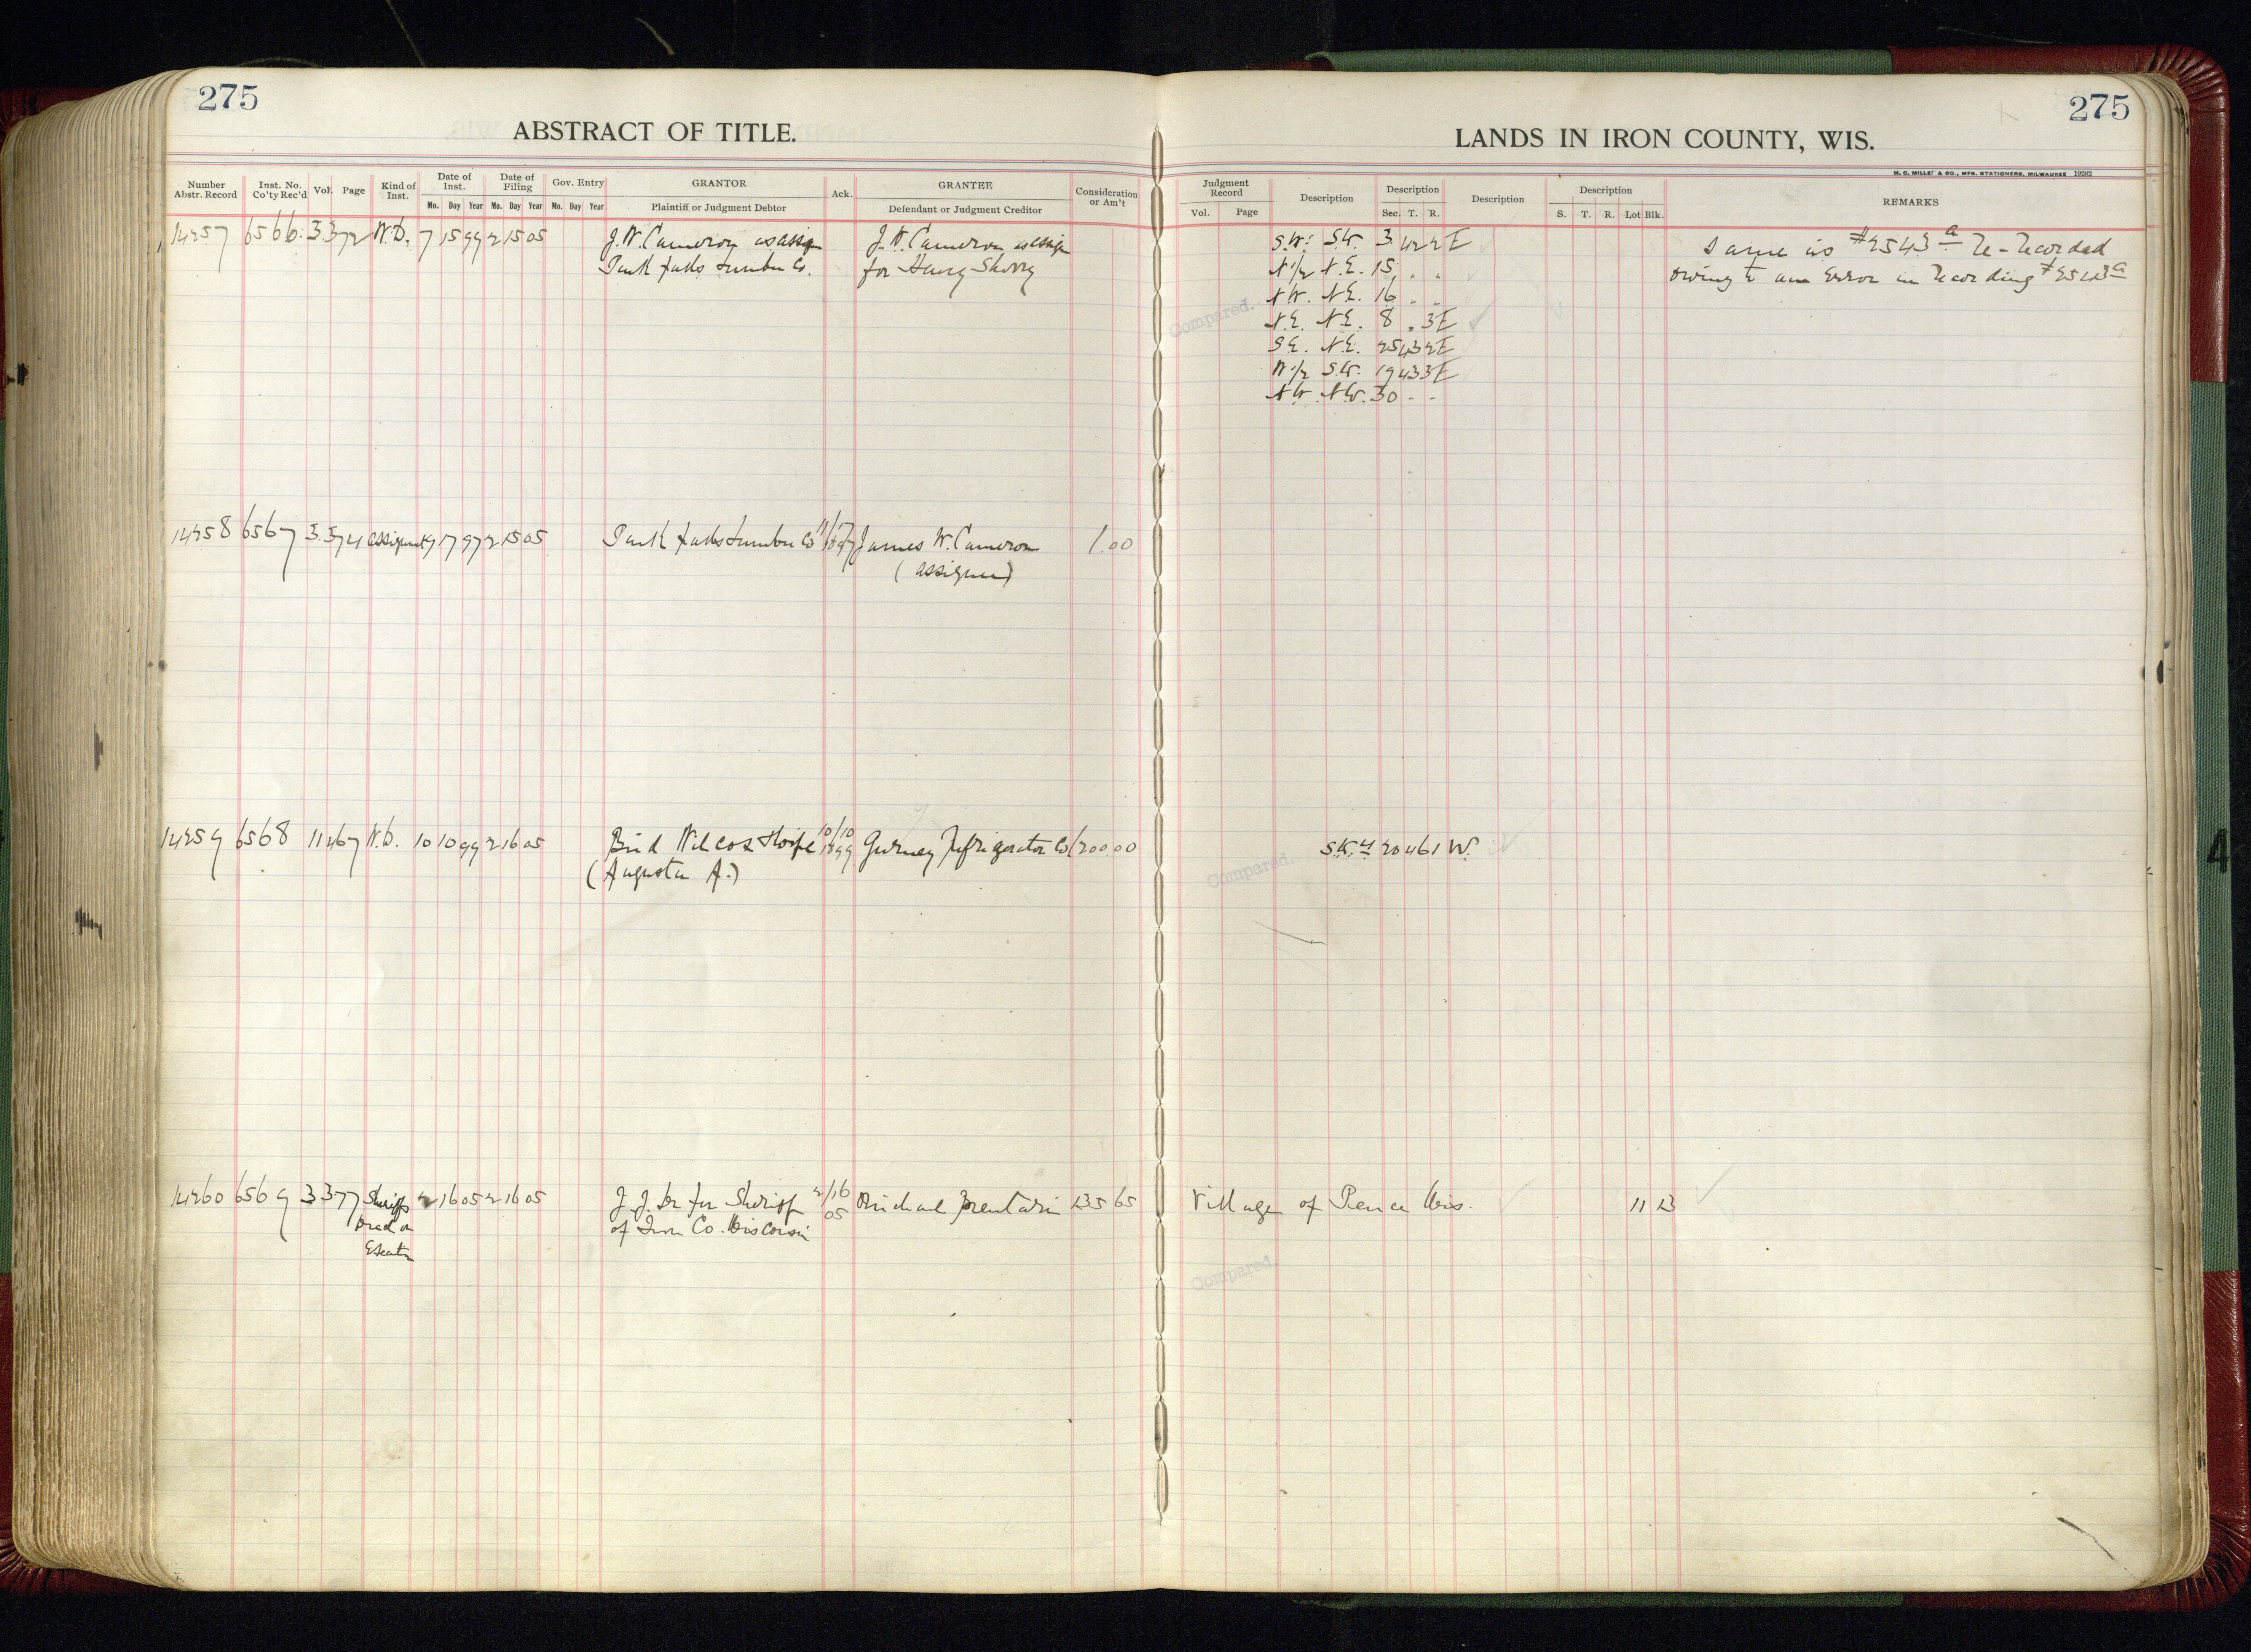 275
275
ABSTRACT OF TITLE.
LANDS IN IRON COUNTY, WIS.
H. C. MILLER & CO., MFG. STATIONERS, MILWAUKEE 19282
Number Abstr. Record Inst. No. Co'ty Rec'd Vol. Page Kind of Inst. Date of Inst. Date of Filing Gov. Entry GRANTOR Ack. GRANTEE Consideration or Am't
Mo. Day Year Mo. Day Year Mo. Day Year Plaintiff or Judgment Debtor Defendant or Judgment Creditor
Judgment Record Description Description Description Description REMARKS
Vol. Page Sec. T. R. S. T. R. Lot Blk.
14257 6566 3 372 W.D. 7 15 99 2 15 05 J.W. Cameron as assign J.W. Cameron as assign S.W. S.W. 3 42 2E Same as #2543a Re-Recorded
Park Falls Lumber Co. for Henry Sherry N1/2 N.E. 15 . . owing to an Error in Recording #2543a
N.W. N.E. 16 . .
Compared.
N.E. N.E. 8 . 3E
S.E. N.E. 25 43 2E
W1/2 S.W. 19 43 3E
N.W. N.W. 30 - -
14258 6567 3 374 assignmt 9 17 97 2 15 05 Park Falls Lumber Co James W. Cameron 1.00
(assignee)
14259 6568 11 467 W.D. 10 10 99 2 16 05 Wilcox Thorpe 10/10 1899 Gurney Refrigerator Co 1200.00 S.W.4 20 46 1 W.
(Augusta A.)
Compared.
14260 6569 3 377 Sheriffs 2 16 05 2 16 05 Sheriff 2/16 05 135 65 Village of Pence Wis. 11 13
Deed on of Iron Co. Wisconsin
Execution
Compared.